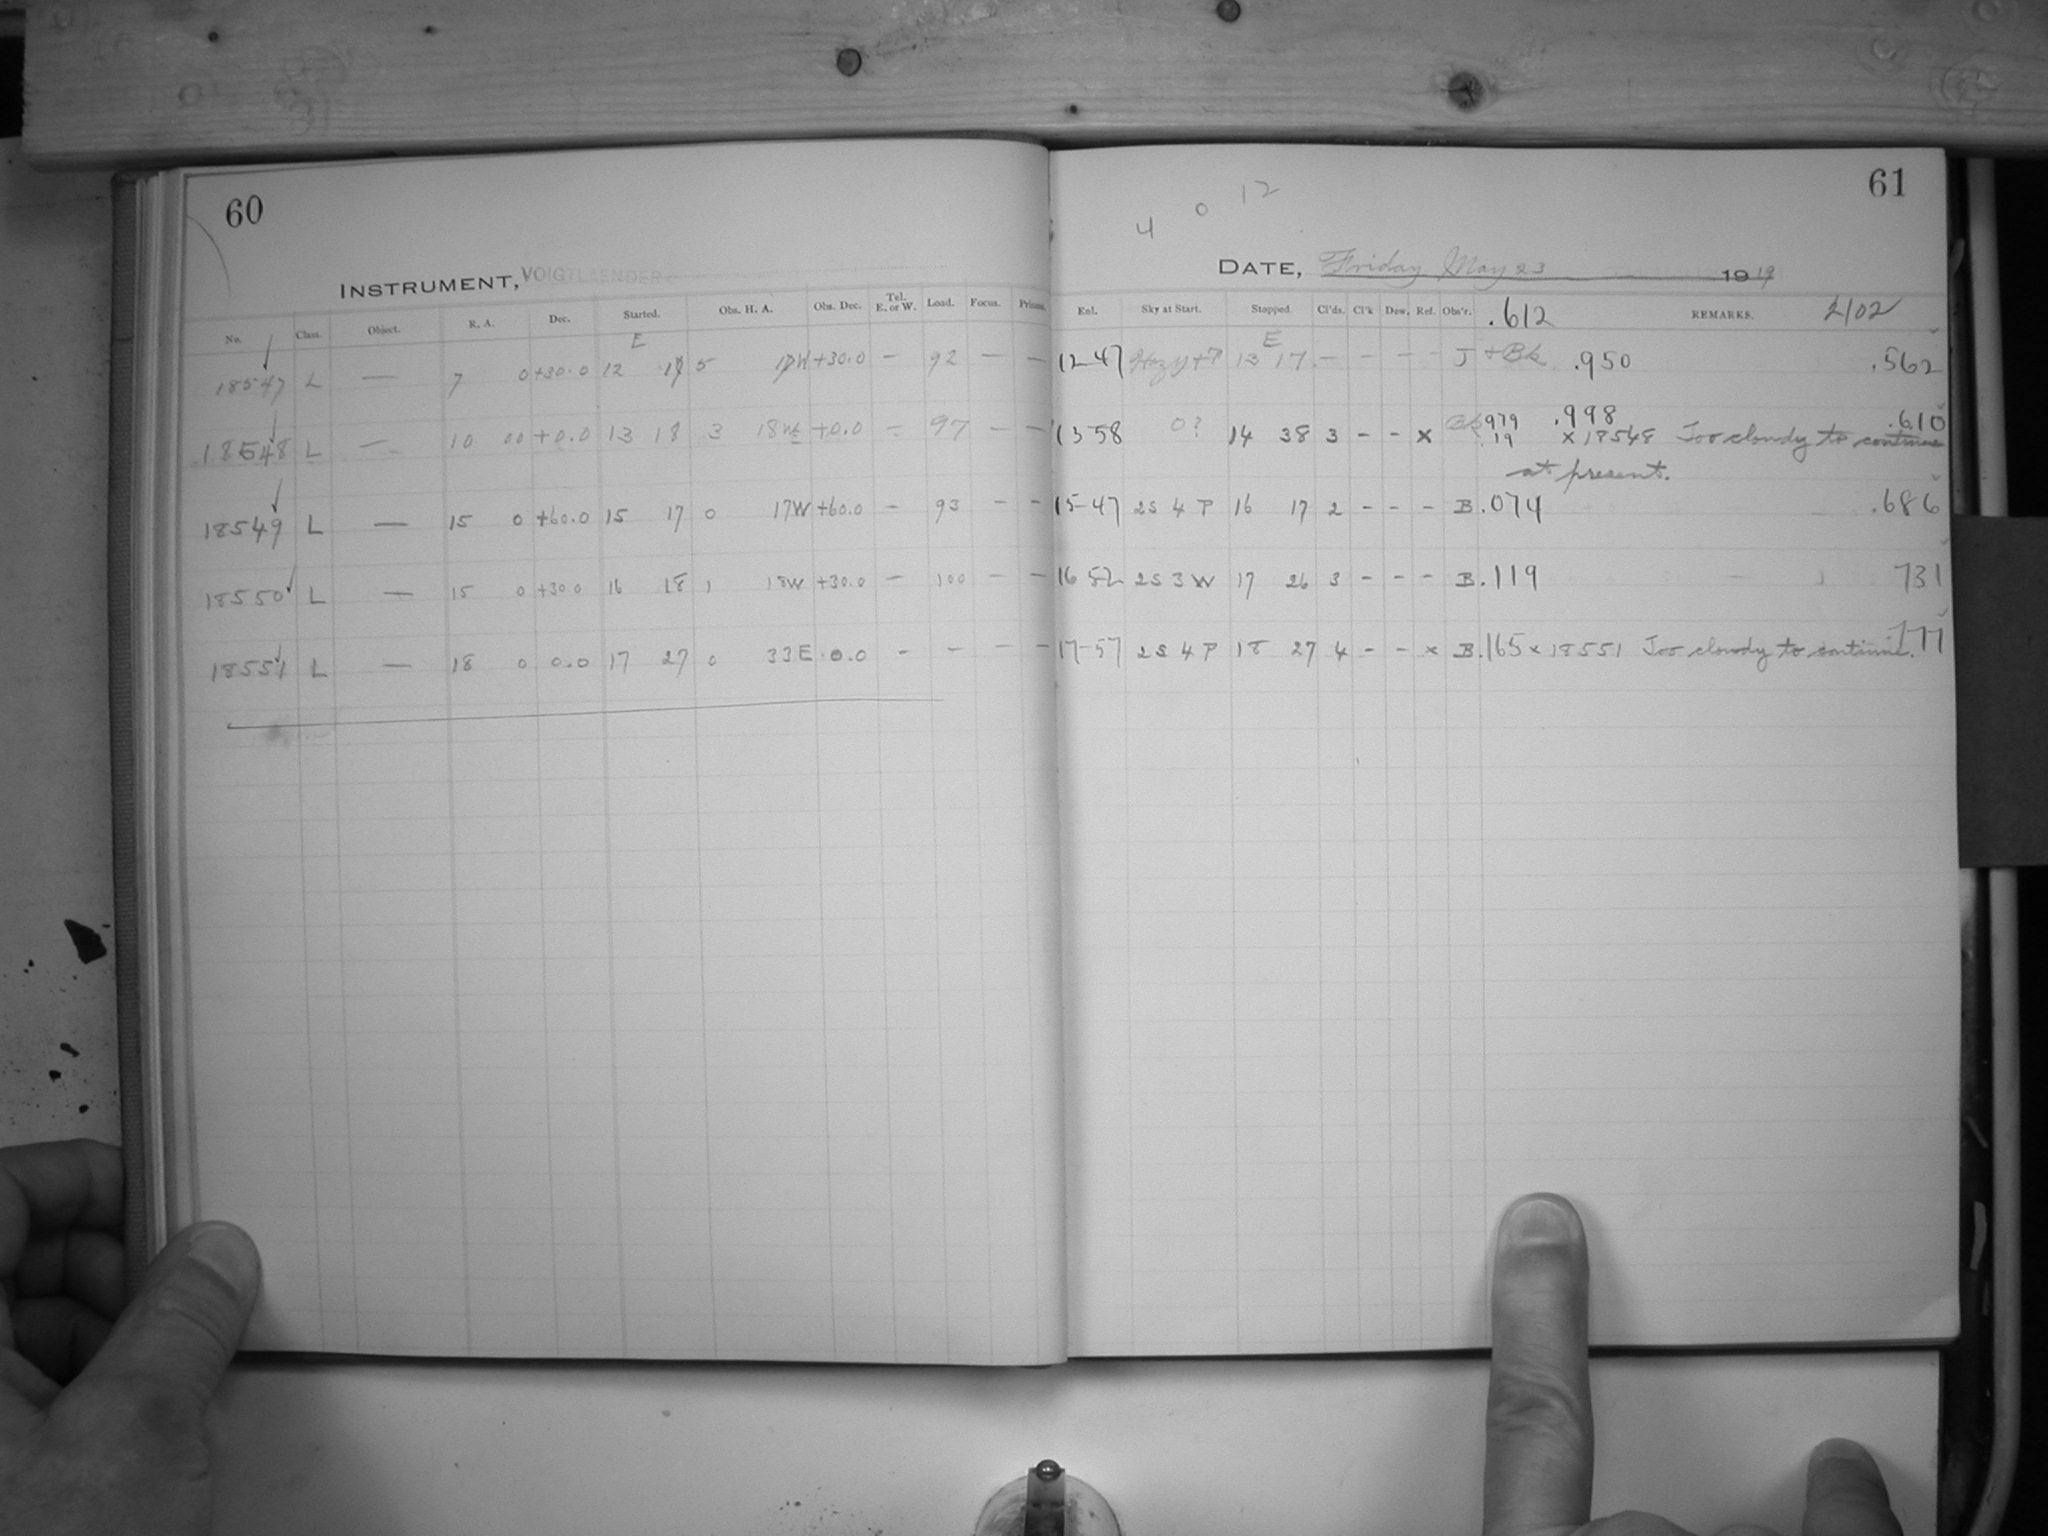 60
INSTRUMENT, VOIGTLAENDER
No. Class. Object. R. A. Dec. Started. Obs. H. A. Obs. Dec. Tel. E. or W. Load. Focus. Prisms.
E
18547 L — 7 0 +30.0 12 17 5 17W +30.0 — 92 — —
18548 L — 10 00 +0.0 13 18 3 18W +0.0 — 97 — —
18549 L — 15 0 +60.0 15 17 0 17W +60.0 — 93 — —
18550 L — 15 0 +30.0 16 18 1 18W +30.0 — 100 — —
18551 L — 18 0 0.0 17 27 0 33E 0.0 - - - -
61
4 0 12
DATE, Friday May 23 1919
Exl. Sky at Start. Stopped. Cl'ds. Cl'k Dew. Ref. Obs'r. .612 REMARKS. 2102
E
12 47 Hazy + P 13 17 - - - - J + Bk .950 .562
13 58 0? 14 38 3 - - x Bk 979 .998 .610
.19 x 18548 Too cloudy to continue
at present.
15-47 2S 4 P 16 17 2 - - - B .074 .686
16 52 2S 3 W 17 26 3 - - - B .119 731
17-57 2S 4 P 18 27 4 - - x B .165 x 18551 Too cloudy to continue. 777